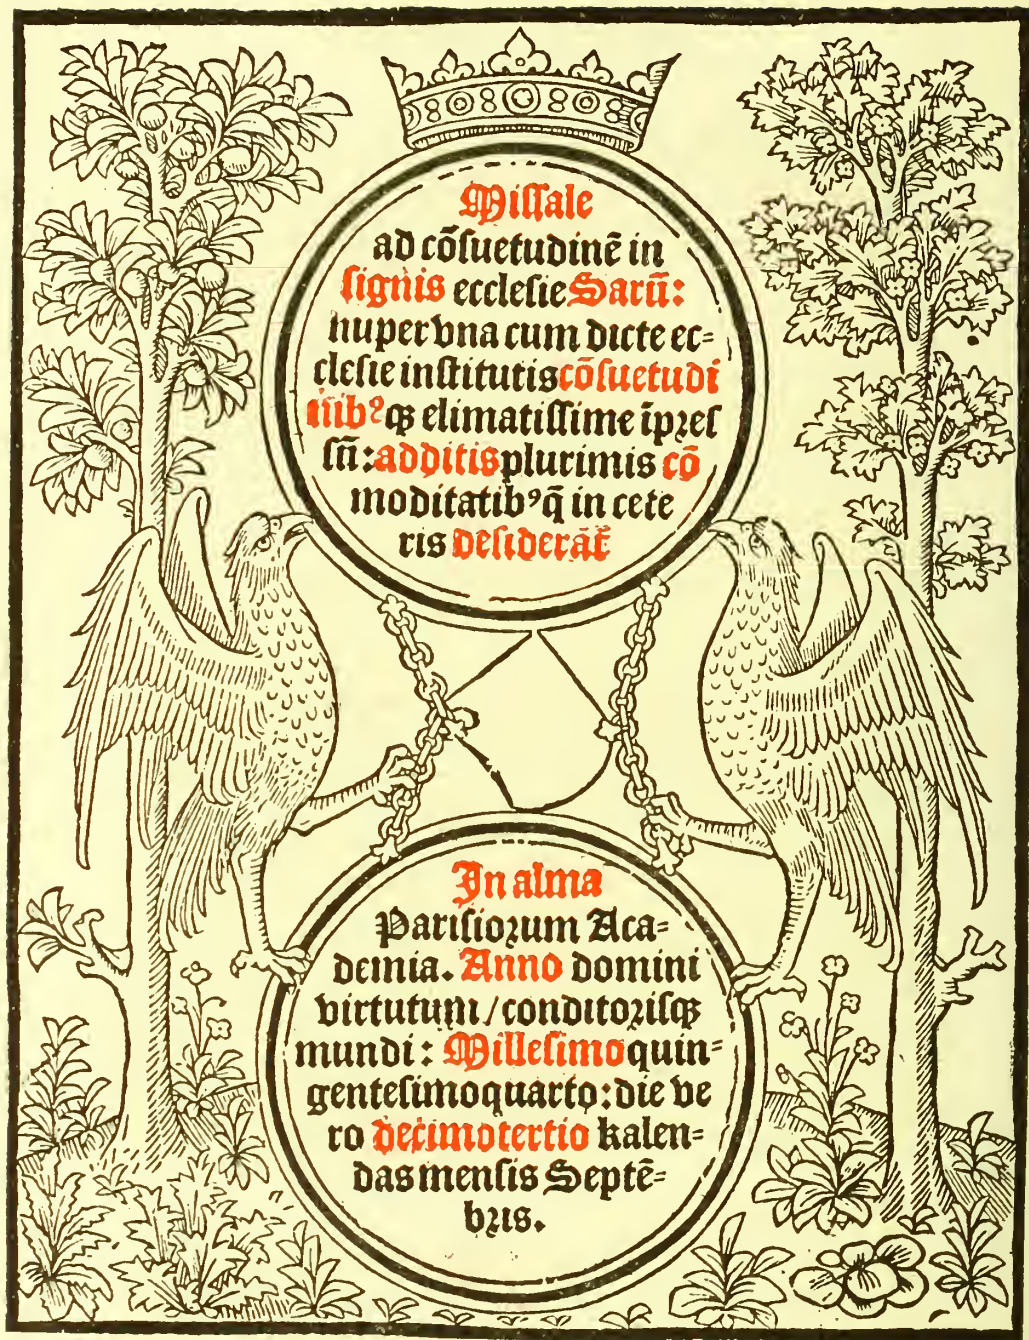 Missale
ad cōsuetudinē in
signis ecclesie Sarū:
nuper vna cum dicte ec=
clesie institutis cōsuetudi
nib⁹qꝫ elimatissime īpꝛes
sū: additis plurimis cō
moditatib⁹ q̄ in cete
ris desiderāt̄
In alma
Parisioꝛum Aca=
demia. Anno domini
virtutum/conditoꝛisqꝫ
mundi: Millesimo quin=
gentesimoquarto: die ve
ro decimotertio kalen=
das mensis Septē=
bꝛis.